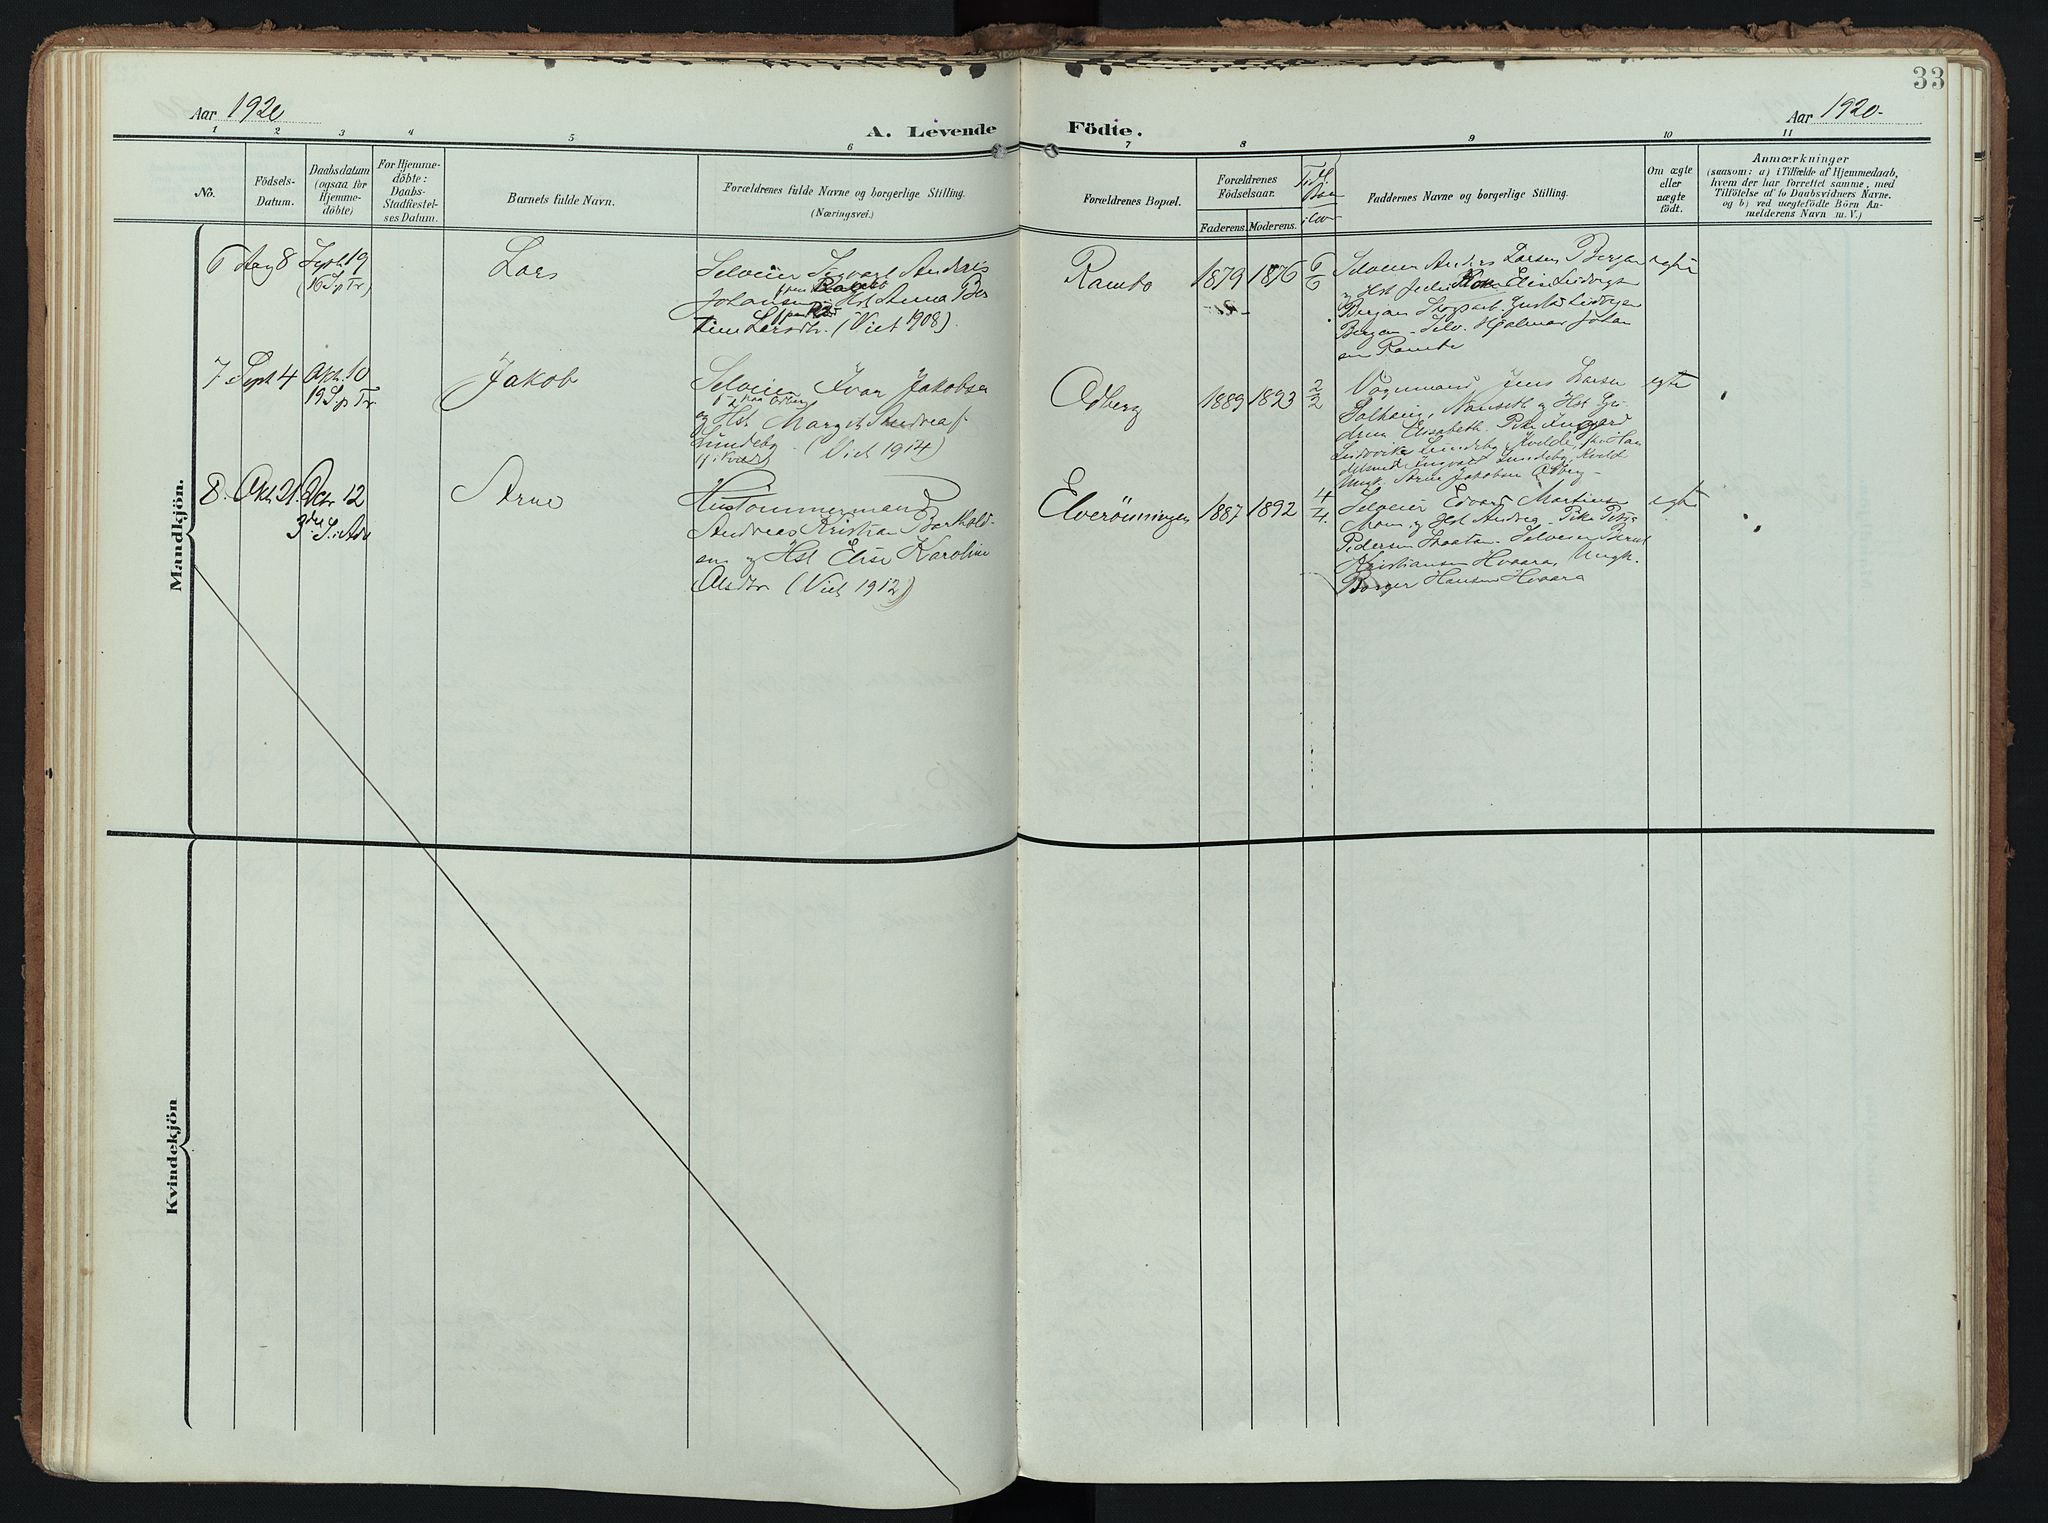 33
Aar 1920
A. Levende Födte.
Aar 1920.
1 2 3 4 5 6 7 8 9 10 11
No.
Födsels-
Datum.
Daabsdatum
(ogsaa for
Hjemme-
döbte)
For Hjemme-
döbte:
Daabs-
Stadfæstel-
ses Datum.
Barnets fulde Navn.
Forældrenes fulde Navne og borgerlige Stilling.
(Næringsvei.)
Forældrenes Bopæl.
Forældrenes
Födselsaar.
Faderens. Moderens.
Faddernes Navne og borgerlige Stilling.
Om ægte
eller
uægte
födt.
Anmærkninger
(saasom: a) i Tilfælde af Hjemmedaab,
hvem der har forrettet samme, med
Tilföielse af to Daabsvidners Navne.
og b) ved uægtefödte Börn An-
melderens Navn m. V.)
Mandkjön.
6 Aug 8 Sept. 19
(16 S p Tr)
Lars
Selveier Sigvart Andreas
Johansen Hst Anna
Larsdtr. (Viet 1908).
Rambo
1879 1876
6/6
Selveier Anders Larsen Bergan
Hst Elise Ludvigsen
Bergan
Bergan. Selv. Hjalmar Johan
sen Rambo
ægte
7 Sept 4 Okt. 10
19 S p Tr
Jakob
Selveier Ivar Jakobsen
og Hst Margit Andrea f.
Lundeby (Viet 1914)
Odberg
1889 1893
2/2
Vognmand Jens Larsen
Solhaug, Nanseth og Hst
Elisabeth. Pike
Lundeby Kvelde,
Ingvald Lundeby Kveld
Ungk. Jakobsen Odberg
egte
8. Okt 21. Dcbr 12
3de S. i Adv
Arne
Hustømmermand
Andreas Kristian Berthold-
sen og Hst Elise Karoline
Olsdtr (Viet 1912)
Elverönningen
1887 1892
4/4.
Selveier Edvard Martinsen
Moen og Hst Andrea. Pike
Pedersen Selveier Bernt
Kristiansen Hvaara, Ungk.
Borger Hansen Hvaara
egte
Kvindekjön